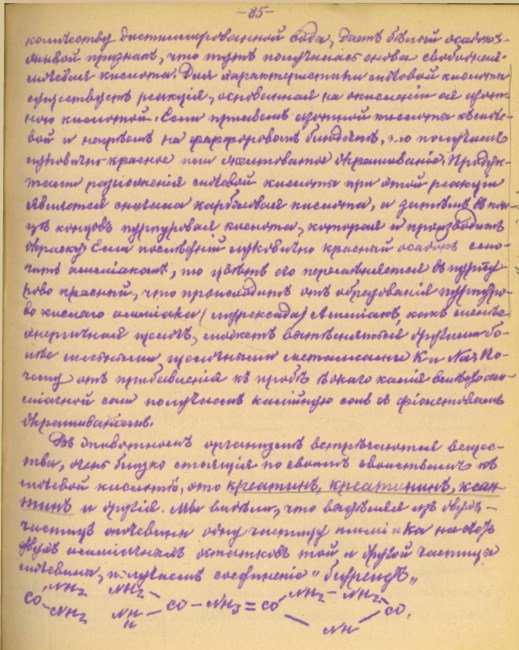 —85—
количеству дистиллированной воды, дастъ бѣлый осадокъ,
явный признакъ, что тутъ получилась снова свободная
мочевая кислота. Для характеристики мочевой кислоты
существуетъ реакція, основанная на окисленіи её азот-
ною кислотой. Если прильемъ азотной кислоты къ моче-
вой и нагрѣемъ на фарфоровомъ блюдечкѣ, то получимъ
луковично-красное или желтоватое окрашиваніе. Продук-
тами разложенія мочевой кислоты при этой реакціи
является сначала карболевая кислота, а затѣмъ въ кон-
цѣ концовъ пурпуровая кислота, которая и производитъ
окраску. Если послѣдній луковично красный осадокъ смо-
чить амміакомъ, то цвѣтъ его перемѣняется въ пурпу-
рово красный, что происходитъ отъ образованія пурпуро-
во кислаго амміака (мурексида). Амміакъ, какъ менѣе
энергичная щелочь, можетъ вытѣсняться другими бо-
лѣе сильными щелочными металлами K и Na. По-
чему отъ прибавленія къ пробѣ ѣдкаго калія вмѣсто ам-
міачной соли получимъ калійную соль съ фіолетовымъ
окрашиваніемъ.
Въ животномъ организмѣ встрѣчаются веще-
ства, очень близко стоящія по своимъ свойствамъ къ
мочевой кислотѣ, это креатинъ, креатининъ, ксан-
тинъ и другія. Мы видѣли, что выдѣляя изъ двухъ
частицъ мочевины одну частицу амміака на счетъ
двухъ амміачныхъ остатковъ той и другой частицы
мочевины, получаемъ соединеніе "біуретъ"
CO NH2 NH2 NH2 NH2
NH2 NH H CO — NH3 = CO NH CO,